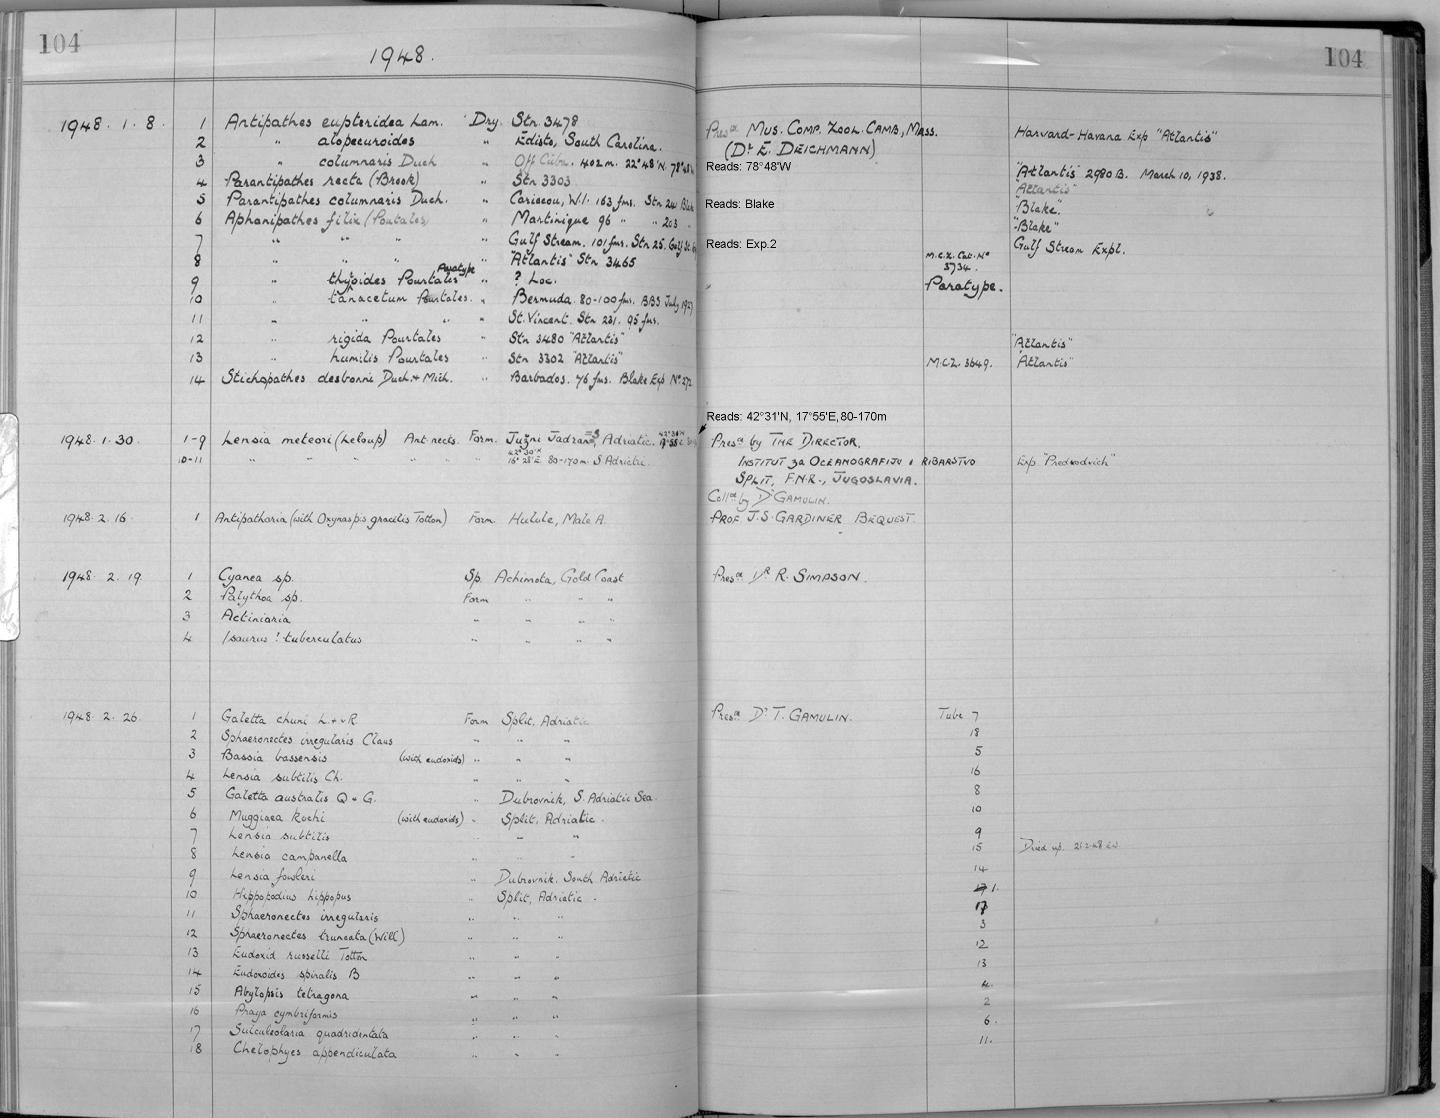 104
1948.
104
1948. 1. 8. 1 Antipathes eupteridea Lam. Dry. Stn. 3478 Pres^d Mus. Comp. Zool. Camb, Mass. Harvard-Havana Exp "Atlantis"
2 " alopecuroides " Edisto, South Carolina. (D^r E. Deichmann)
3 " columnaris Duch " Off Cuba. 402m. 22°48'N. 78°48'W Reads: 78°48'W "Atlantis" 2980B. March 10, 1938.
4 Parantipathes recta (Brook) " Stn 3303 "Atlantis"
5 Parantipathes columnaris Duch. " Cariacou, W.I. 163 fms. Stn 241 Blake Reads: Blake "Blake".
6 Aphanipathes filix (Pourtales) " Martinique 96 " " 203 "Blake"
7 " " " " Gulf Stream. 101 fms. Stn 25. Gulf St. Reads: Exp.2 Gulf Stream Expl.
8 " " " " "Atlantis" Stn 3465 M.C.Z. Cat. N° 5734.
9 " thyoides Pourtales Paratype " ? Loc. " Paratype.
10 " tanacetum Pourtales. " Bermuda. 80-100 fms. BBS July 1927
11 " " " " St. Vincent. Stn 231. 95 fms.
12 " rigida Pourtales Stn 3480 "Atlantis" "Atlantis"
13 " humilis Pourtales " Stn 3302 "Atlantis" M.C.Z. 3649. "Atlantis"
14 Stichopathes desbonni Duch. & Mich. " Barbados. 76 fms. Blake Exp N° 272.
Reads: 42°31'N, 17°55'E, 80-170m
1948. 1. 30. 1-9 Lensia meteori (Leloup) Ant. nects. Form. Južni Jadran, = S Adriatic. Pres^d by The Director,
10-11 " " " " " 42°30'N 16°28'E. 80-170m. S Adriatic. Institut za Oceanografiju i Ribarstvo Exp "Predvodvich"
Split, F.N.R., Jugoslavia.
Coll^d by D^r Gamulin.
1948. 2. 16. 1 Antipatharia (with Oxynaspis gracilis Totton) Form. Hulule, Male A. Prof. J. S. Gardiner Bequest.
1948. 2. 19. 1 Cyanea sp. Sp. Achimota, Gold Coast Pres^d D^r R. Simpson.
2 Palythoa sp. Form " " "
3 Actiniaria " " " "
4 Isaurus ? tuberculatus " " " "
1948. 2. 26. 1 Galetta chuni L. & v R. Form Split, Adriatic Pres^d D^r T. Gamulin. Tube 7
2 Sphaeronectes irregularis Claus " " " 18
3 Bassia bassensis (with eudoxids) " " " 5
4 Lensia subtilis Ch. " " " 16
5 Galetta australis Q & G. " Dubrovnik, S. Adriatic Sea. 8
6 Muggiaea kochi (with eudoxids) " Split, Adriatic. 10
7 Lensia subtilis " " 9
8 Lensia campanella " " " 15 Dried up.
9 Lensia fowleri " Dubrovnik. South Adriatic 14
10 Hippopodius hippopus " Split, Adriatic. 1.
11 Sphaeronectes irregularis " " " 17
12 Sphaeronectes truncata (Will) " " " 3
13 Eudoxid russelli Totton " " " 12
14 Eudoxoides spiralis B " " " 13
15 Abylopsis tetragona " " " 4.
16 Praya cymbiformis " " " 2
17 Sulculeolaria quadridentata " " " 6.
18 Chelophyes appendiculata " " " 11.